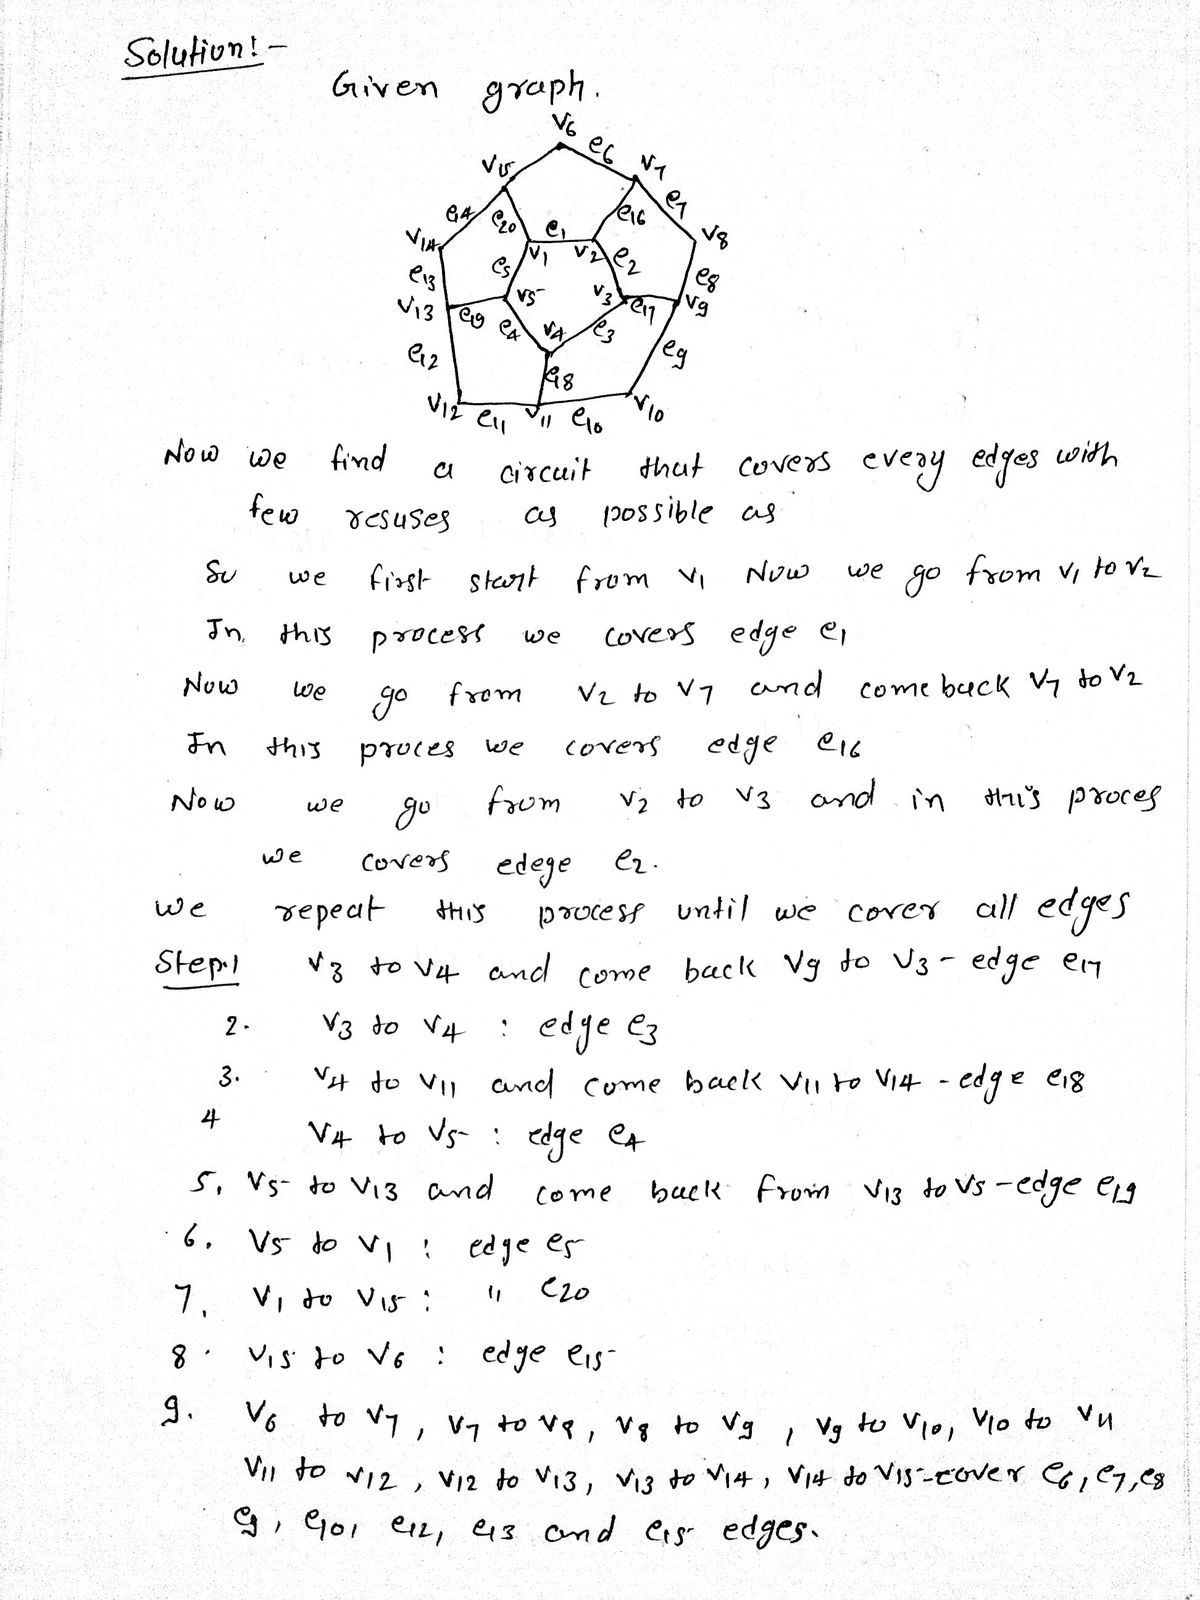 Solution!-
Given graph.
v6
e6
v7
v15
e7
e14
e20
e16
e1
v14
v8
v1
v2
e2
e13
e5
e8
v5
v3
v13
e19
e17
v9
e4
v4
e3
e12
e9
e18
v12
e11
v11
e10
v10
Now we find a circuit that covers every edges with
few resuses as possible as
So we first start from v1 Now we go from v1 to v2
In this process we covers edge e1
Now we go from v2 to v7 and come back v7 to v2
In this proces we covers edge e16
Now we go from v2 to v3 and in this proces
we covers edege e2.
we repeat this process until we cover all edges
Step.1 v3 to v4 and come back v9 to v3 - edge e17
2. v3 to v4 : edge e3
3. v4 to v11 and come back v11 to v14 - edge e18
4 v4 to v5 : edge e4
5. v5 to v13 and come back from v13 to v5 - edge e19
6. v5 to v1 : edge e5
7. v1 to v15 : " e20
8. v15 to v6 : edge e15
9. v6 to v7, v7 to v8, v8 to v9, v9 to v10, v10 to v11
v11 to v12, v12 to v13, v13 to v14, v14 to v15 - cover e6, e7, e8
e9, e10, e12, e13 and e15 edges.